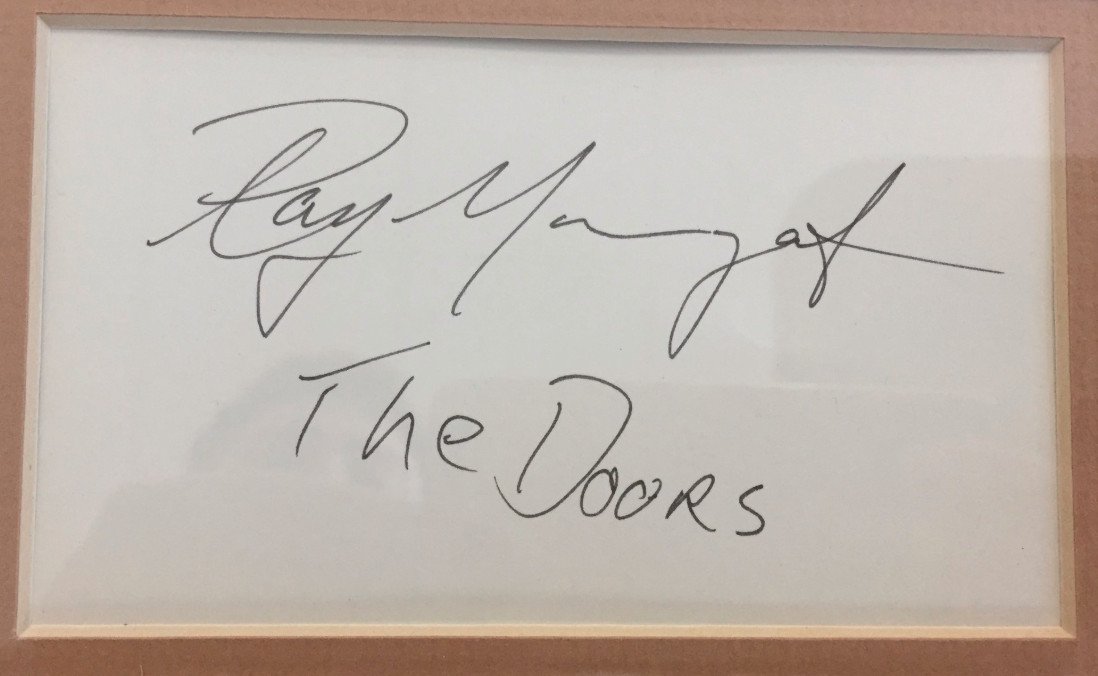 Ray Manzarek
The Doors